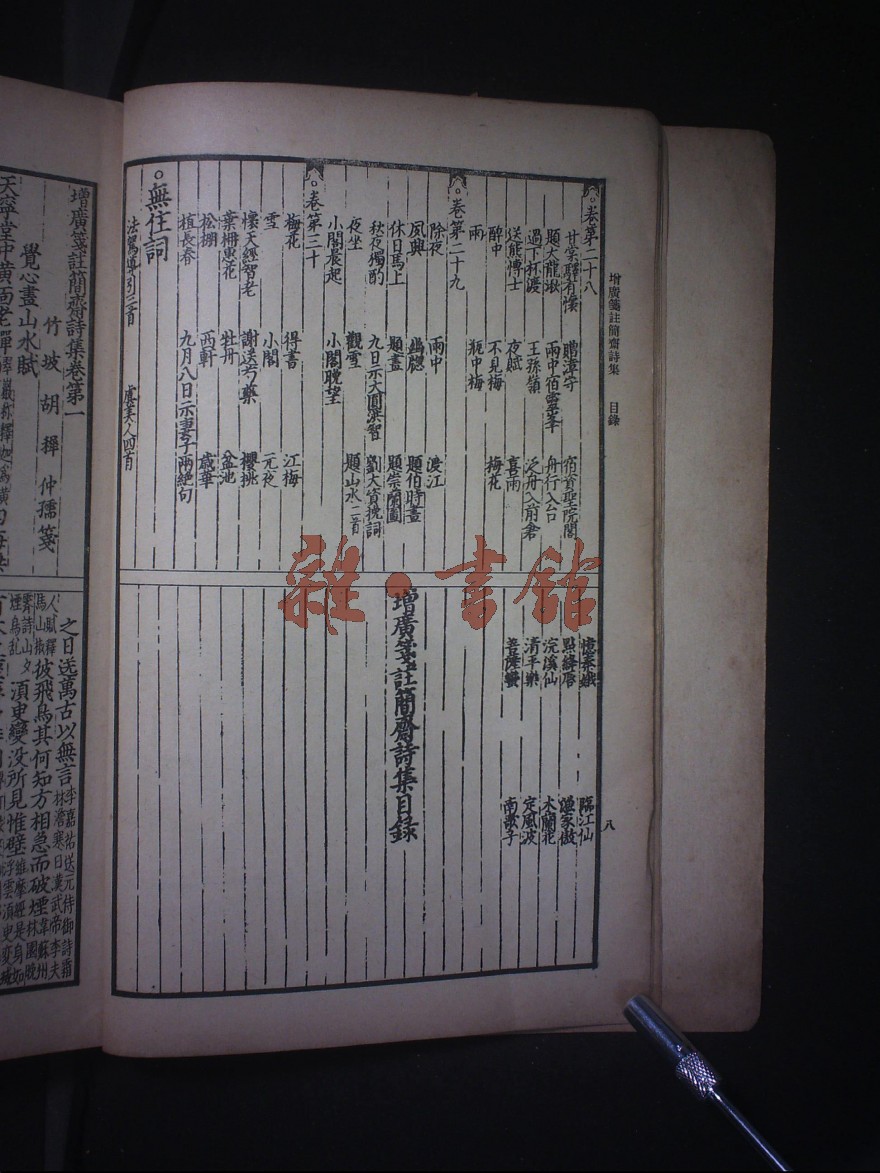 增廣箋註簡齋詩集 目錄
八
卷第二十八
甘棠驛有懷 贈漳守 宿資聖院閣
題大龍湫 雨中宿靈峯 舟行入台
過下杯渡 王孫嶺 泛舟入前倉
送熊博士 夜賦 喜雨
醉中 不見梅 梅花
雨 瓶中梅
卷第二十九
除夜 雨中 渡江
夙興 題伯時畫
休日馬上 題畫 題崇蘭圖
秋夜獨酌 九日示大圓洪智 劉大資挽詞
夜坐 觀雪 題山水二首
小閣晨起 小閣晚望
卷第三十
梅花 得書 江梅
雪 小閣 元夜
懷天經智老 謝送芍藥 櫻桃
葉柟惠花 牡丹 盆池
松棚 西軒 歲華
植長春 九月八日示妻子兩絶句
無住詞
法駕導引三首 虞美人四首
憶秦娥 臨江仙
點絳唇 漁家傲
浣溪仙 木蘭花
清平樂 定風波
菩薩蠻 南歌子
增廣箋註簡齋詩集目錄
增廣箋註簡齋詩集卷第一
竹坡胡穉仲孺箋
覺心畫山水賦
天寧堂中黃面老禪
之日送萬古以無言
李嘉祐送元侍御詩
林澹寒日漢武帝李夫
人賦釋
彼飛鳥其何知方相急而破煙
須臾變没所見惟壁
雜·書館